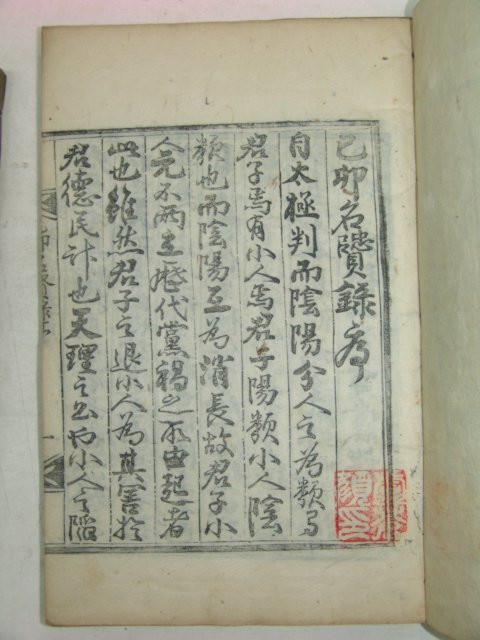 己卯名贒録序
自太極判而陰陽分人之為類有
君子焉有小人焉君子陽類小人陰
類也而陰陽互為消長故君子小
人元不两立歷代黨禍之所由起者
此也雖然君子之退小人為其害於
君德民計也天理之公也小人之陷